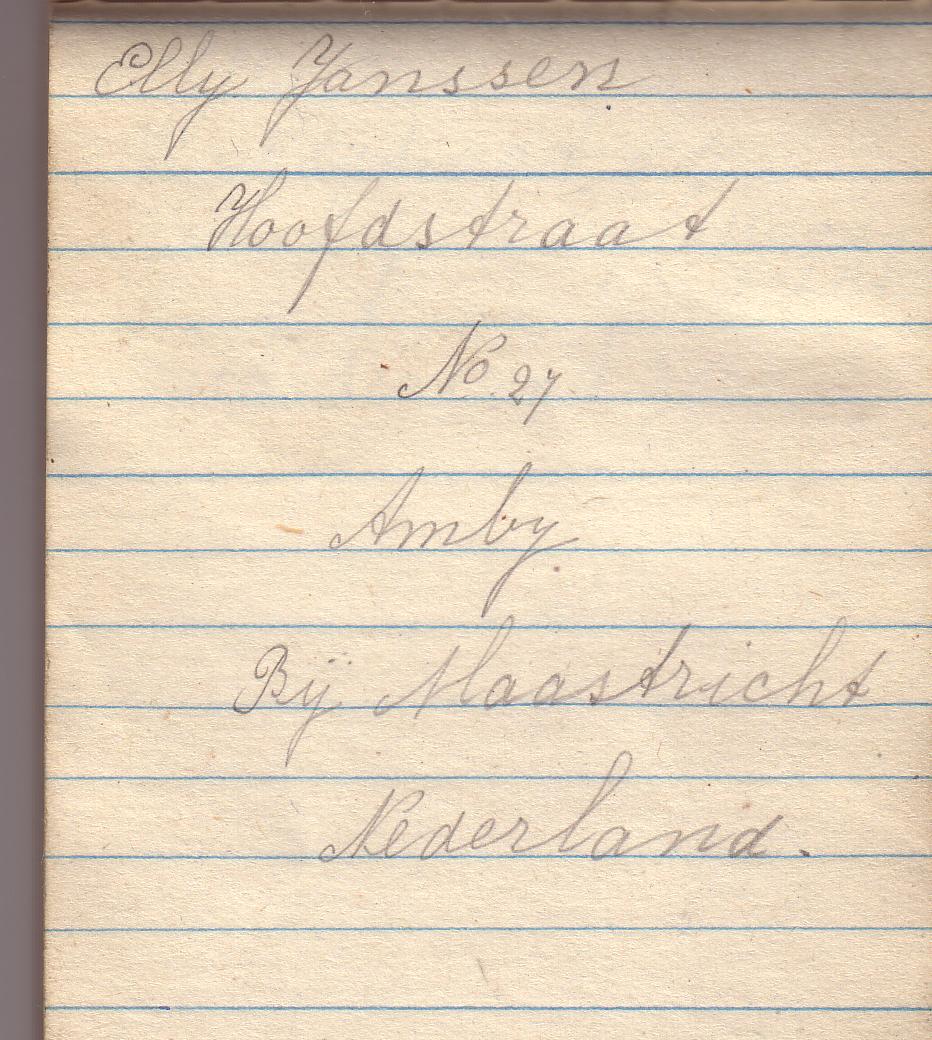 Elly Janssen
Hoofdstraat
No 27
Amby
Bij Maastricht
Nederland.